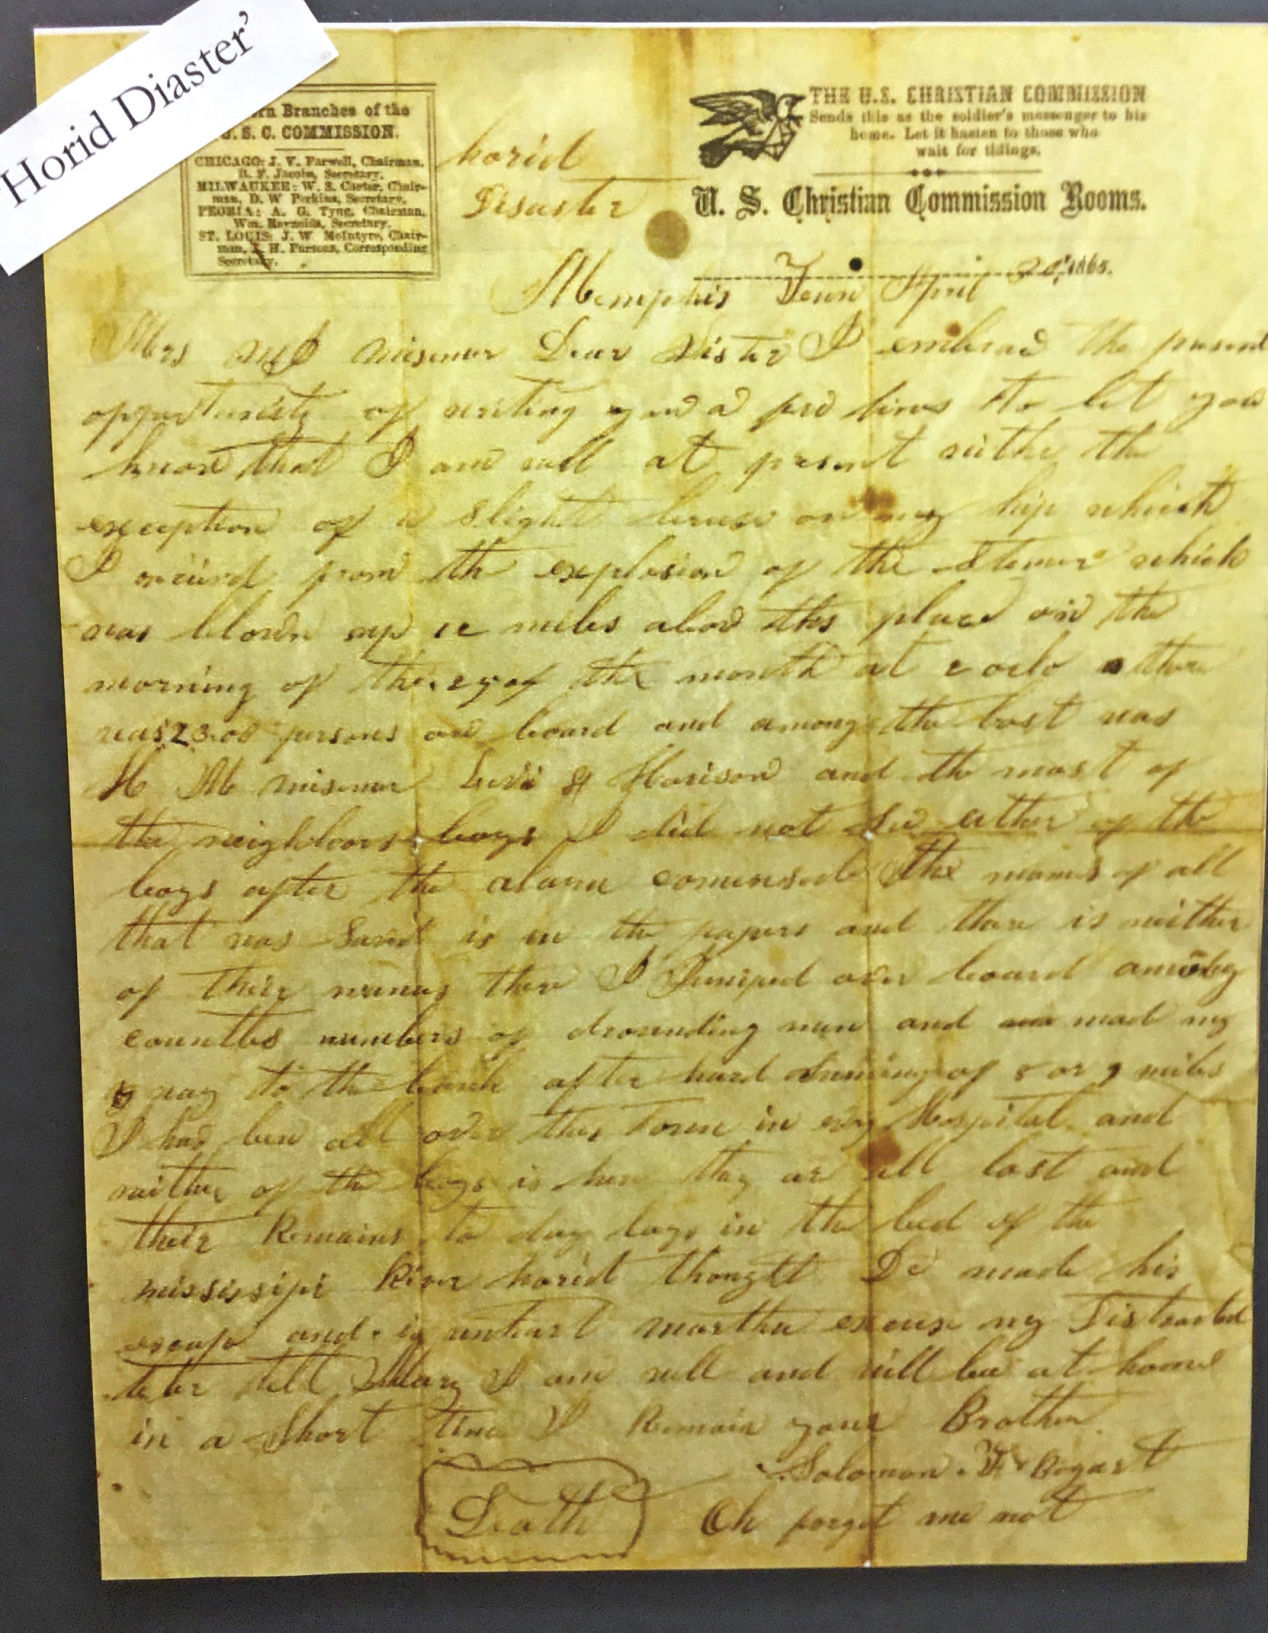 Horid Diaster'
rn Branches of the
U. S. C. COMMISSION.
CHICAGO: J. V. Farwell, Chairman,
B. F. Jacobs, Secretary.
MILWAUKEE: W. S. Carter, Chair-
man, D. W Perkins, Secretary.
PEORIA: A. G. Tyng, Chairman,
Wm. Reynolds, Secretary.
ST. LOUIS: J. W McIntyre, Chair-
man, H. Parsons, Corresponding
Secretary.
horid
Disaster
THE U.S. CHRISTIAN COMMISSION
Sends this as the soldier's messenger to his
home. Let it hasten to those who
wait for tidings.
U. S. Christian Commission Rooms.
Memphis Tenn April 1865.
Mrs misemer Dear Sister I embrace the present
opportunity of writing you a few lines to let you
know that I am well at present withe the
exception of a slight bruse on my hip which
I recived from the explosion of the stemer which
was blown up 12 miles above this place on the
morning of the 27 of the month at 2 oclo thare
was 2300 persons on board and among the lost was
H M misemer Levi & Horison and the most of
the neighbors boys I did not see ether of the
boys after the alarm comensed The names of all
that was Saved is in the papers and thare is neither
of their names thare I Jumped over board among
countles numbers of drounding men and mad my
way to the bank after hard swiming of 8 or 9 miles
I hav ben all over this Town in evry Hospital and
neither of the boys is here they ar all lost and
their Remains to day lays in the bed of the
mississipi River horid thought De made his
escape and is unhurt martha excuse my Distracted
leter tell Mary I am well and will be at home
in a short time I Remain your Brother
Solomon F Bogart
Death
Oh forget me not